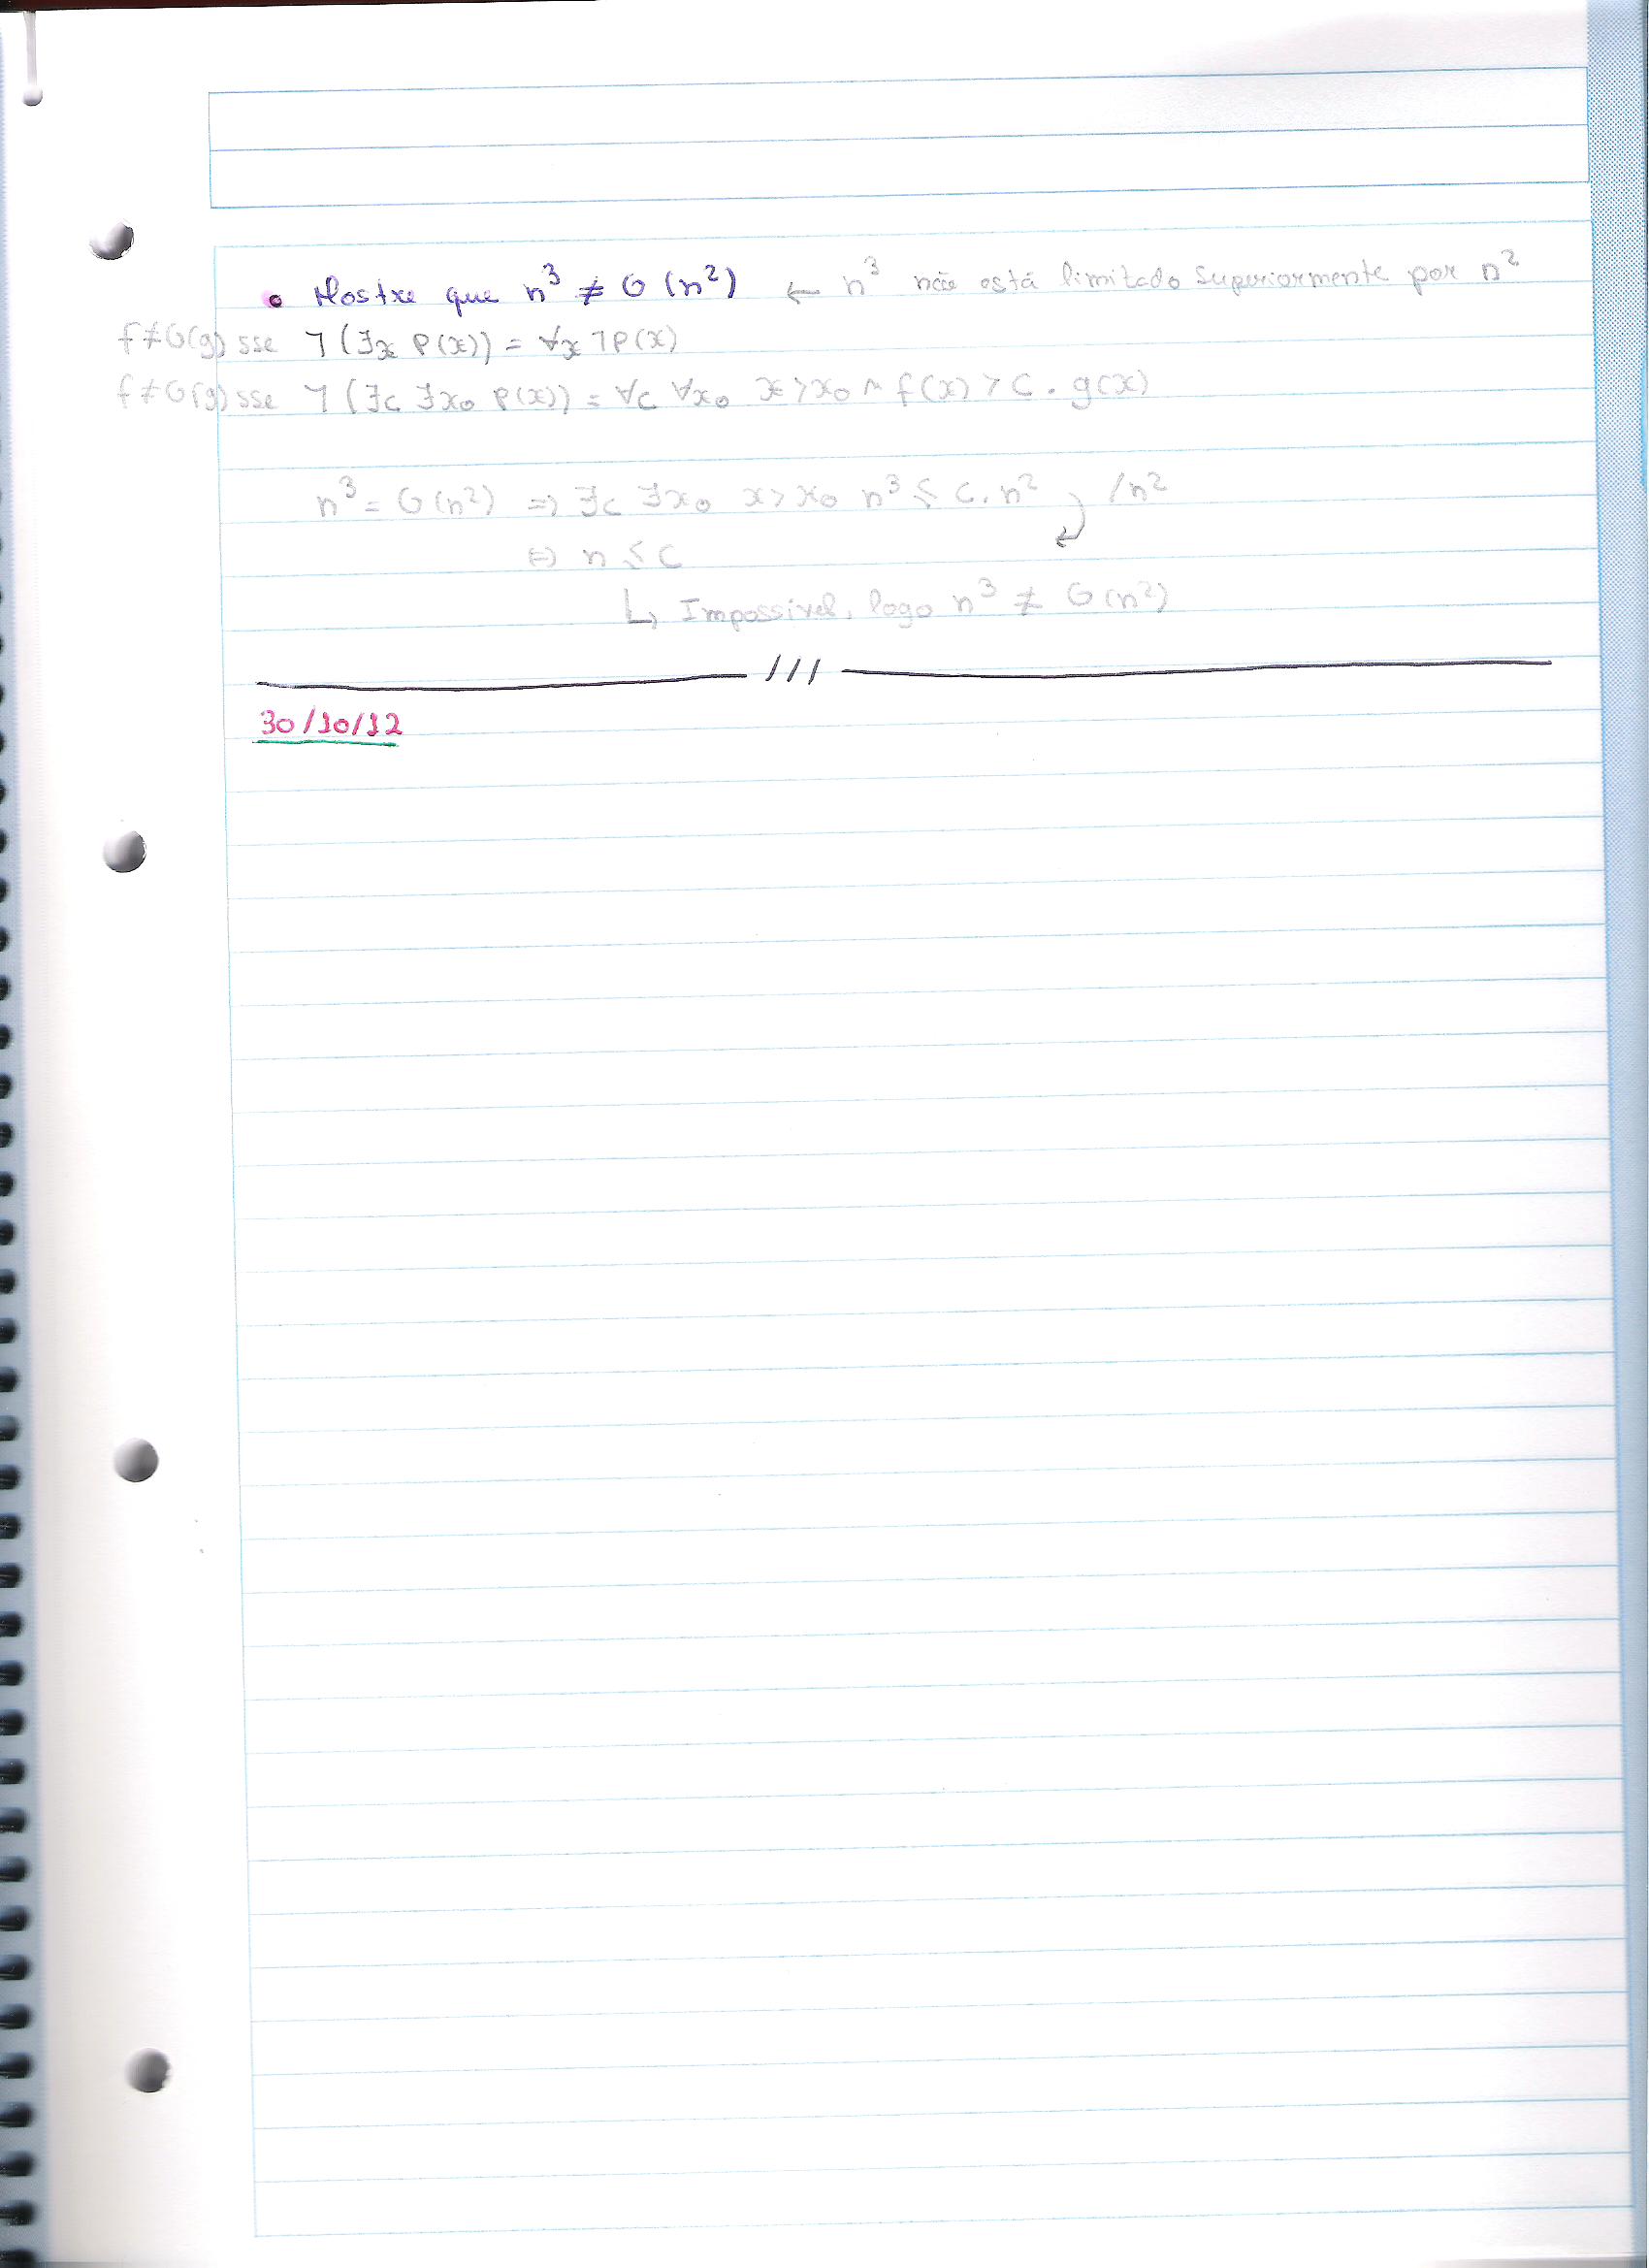 • Mostre que n³ ≠ O(n²) ← n³ não está limitado superiormente por n²
f≠O(g) sse ¬(∃x P(x)) = ∀x ¬P(x)
f≠O(g) sse ¬(∃c ∃x₀ P(x)) = ∀c ∀x₀ x>x₀ ∧ f(x) > c . g(x)
n³ = O(n²) => ∃c ∃x₀ x>x₀ n³ ≤ c.n² /n²
⇔ n ≤ c
↳ Impossível, logo n³ ≠ O(n²)
///
30/10/12